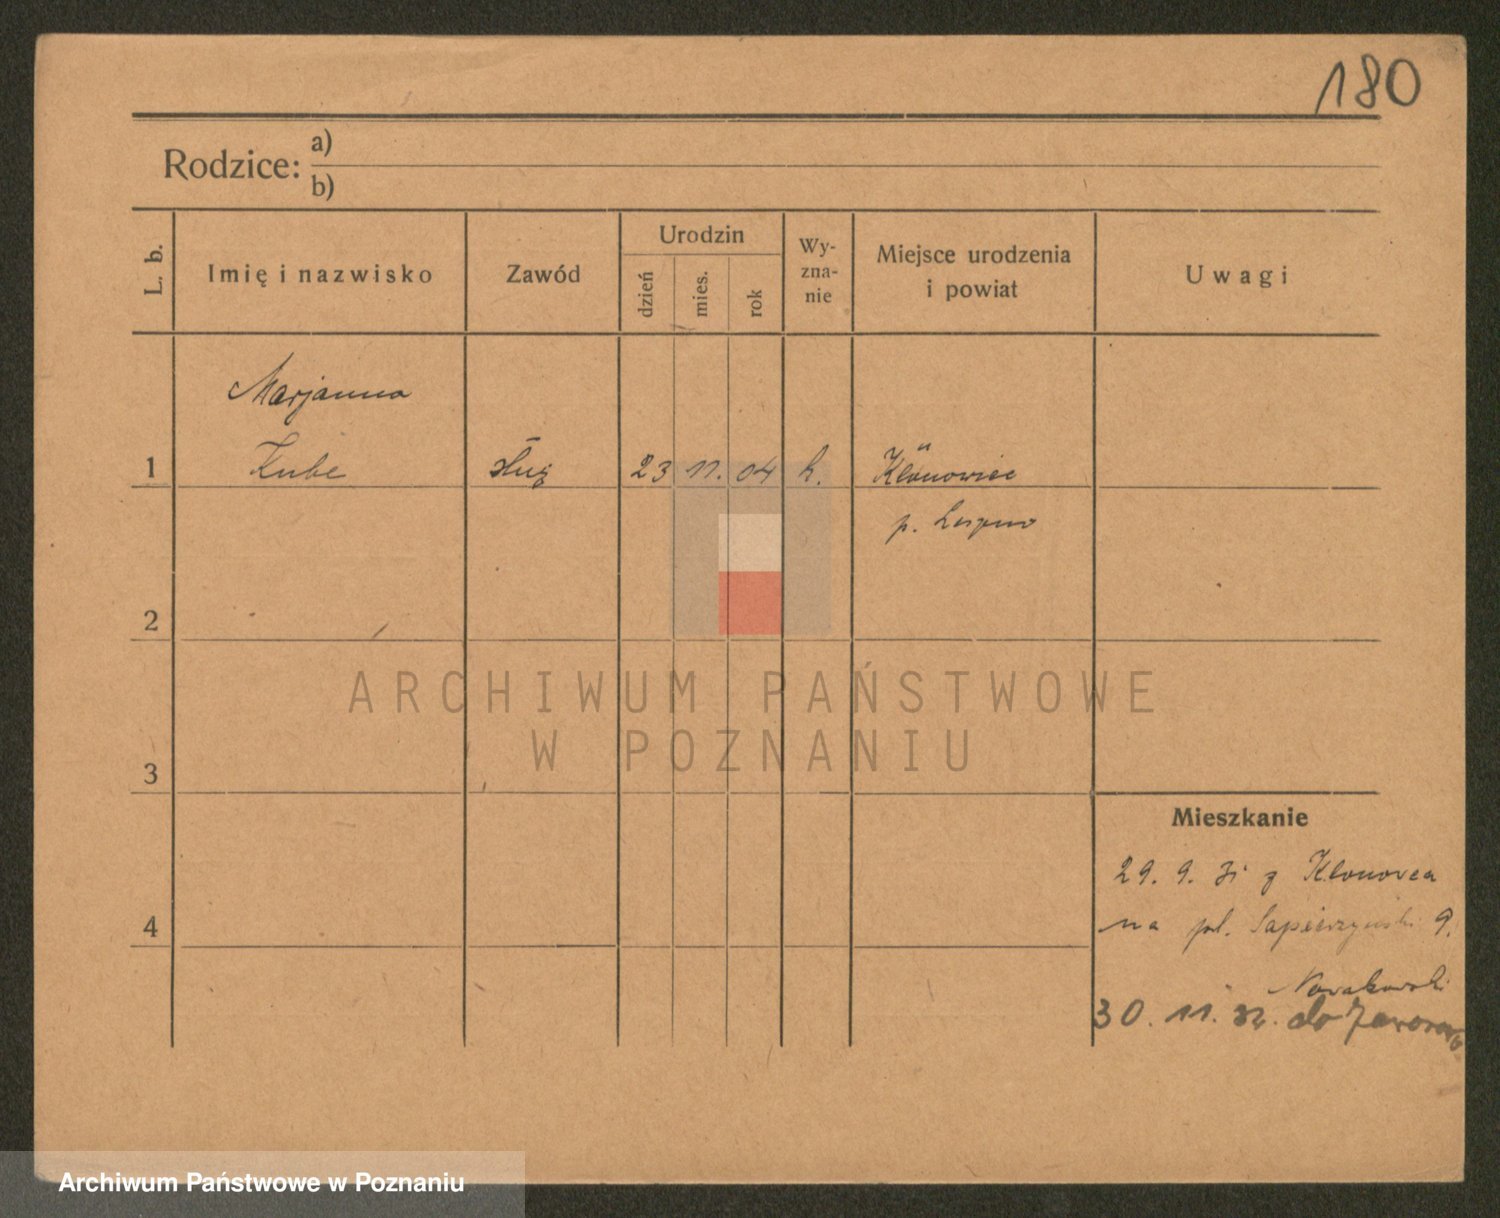 180
Rodzice: a)
b)
L. b. Imię i nazwisko Zawód Urodzin dzień mies. rok Wy-zna-nie Miejsce urodzenia i powiat Uwagi
Marjanna
1 Kube służ 23 11. 04 k. Klonowiec
p. Leszno
2
ARCHIWUM PAŃSTWOWE
W POZNANIU
3
Mieszkanie
29. 9. 31 z Klonowca
4 na pl. Sapieżyński 9.
Nowakowski
30. 11. 32. do
Archiwum Państwowe w Poznaniu